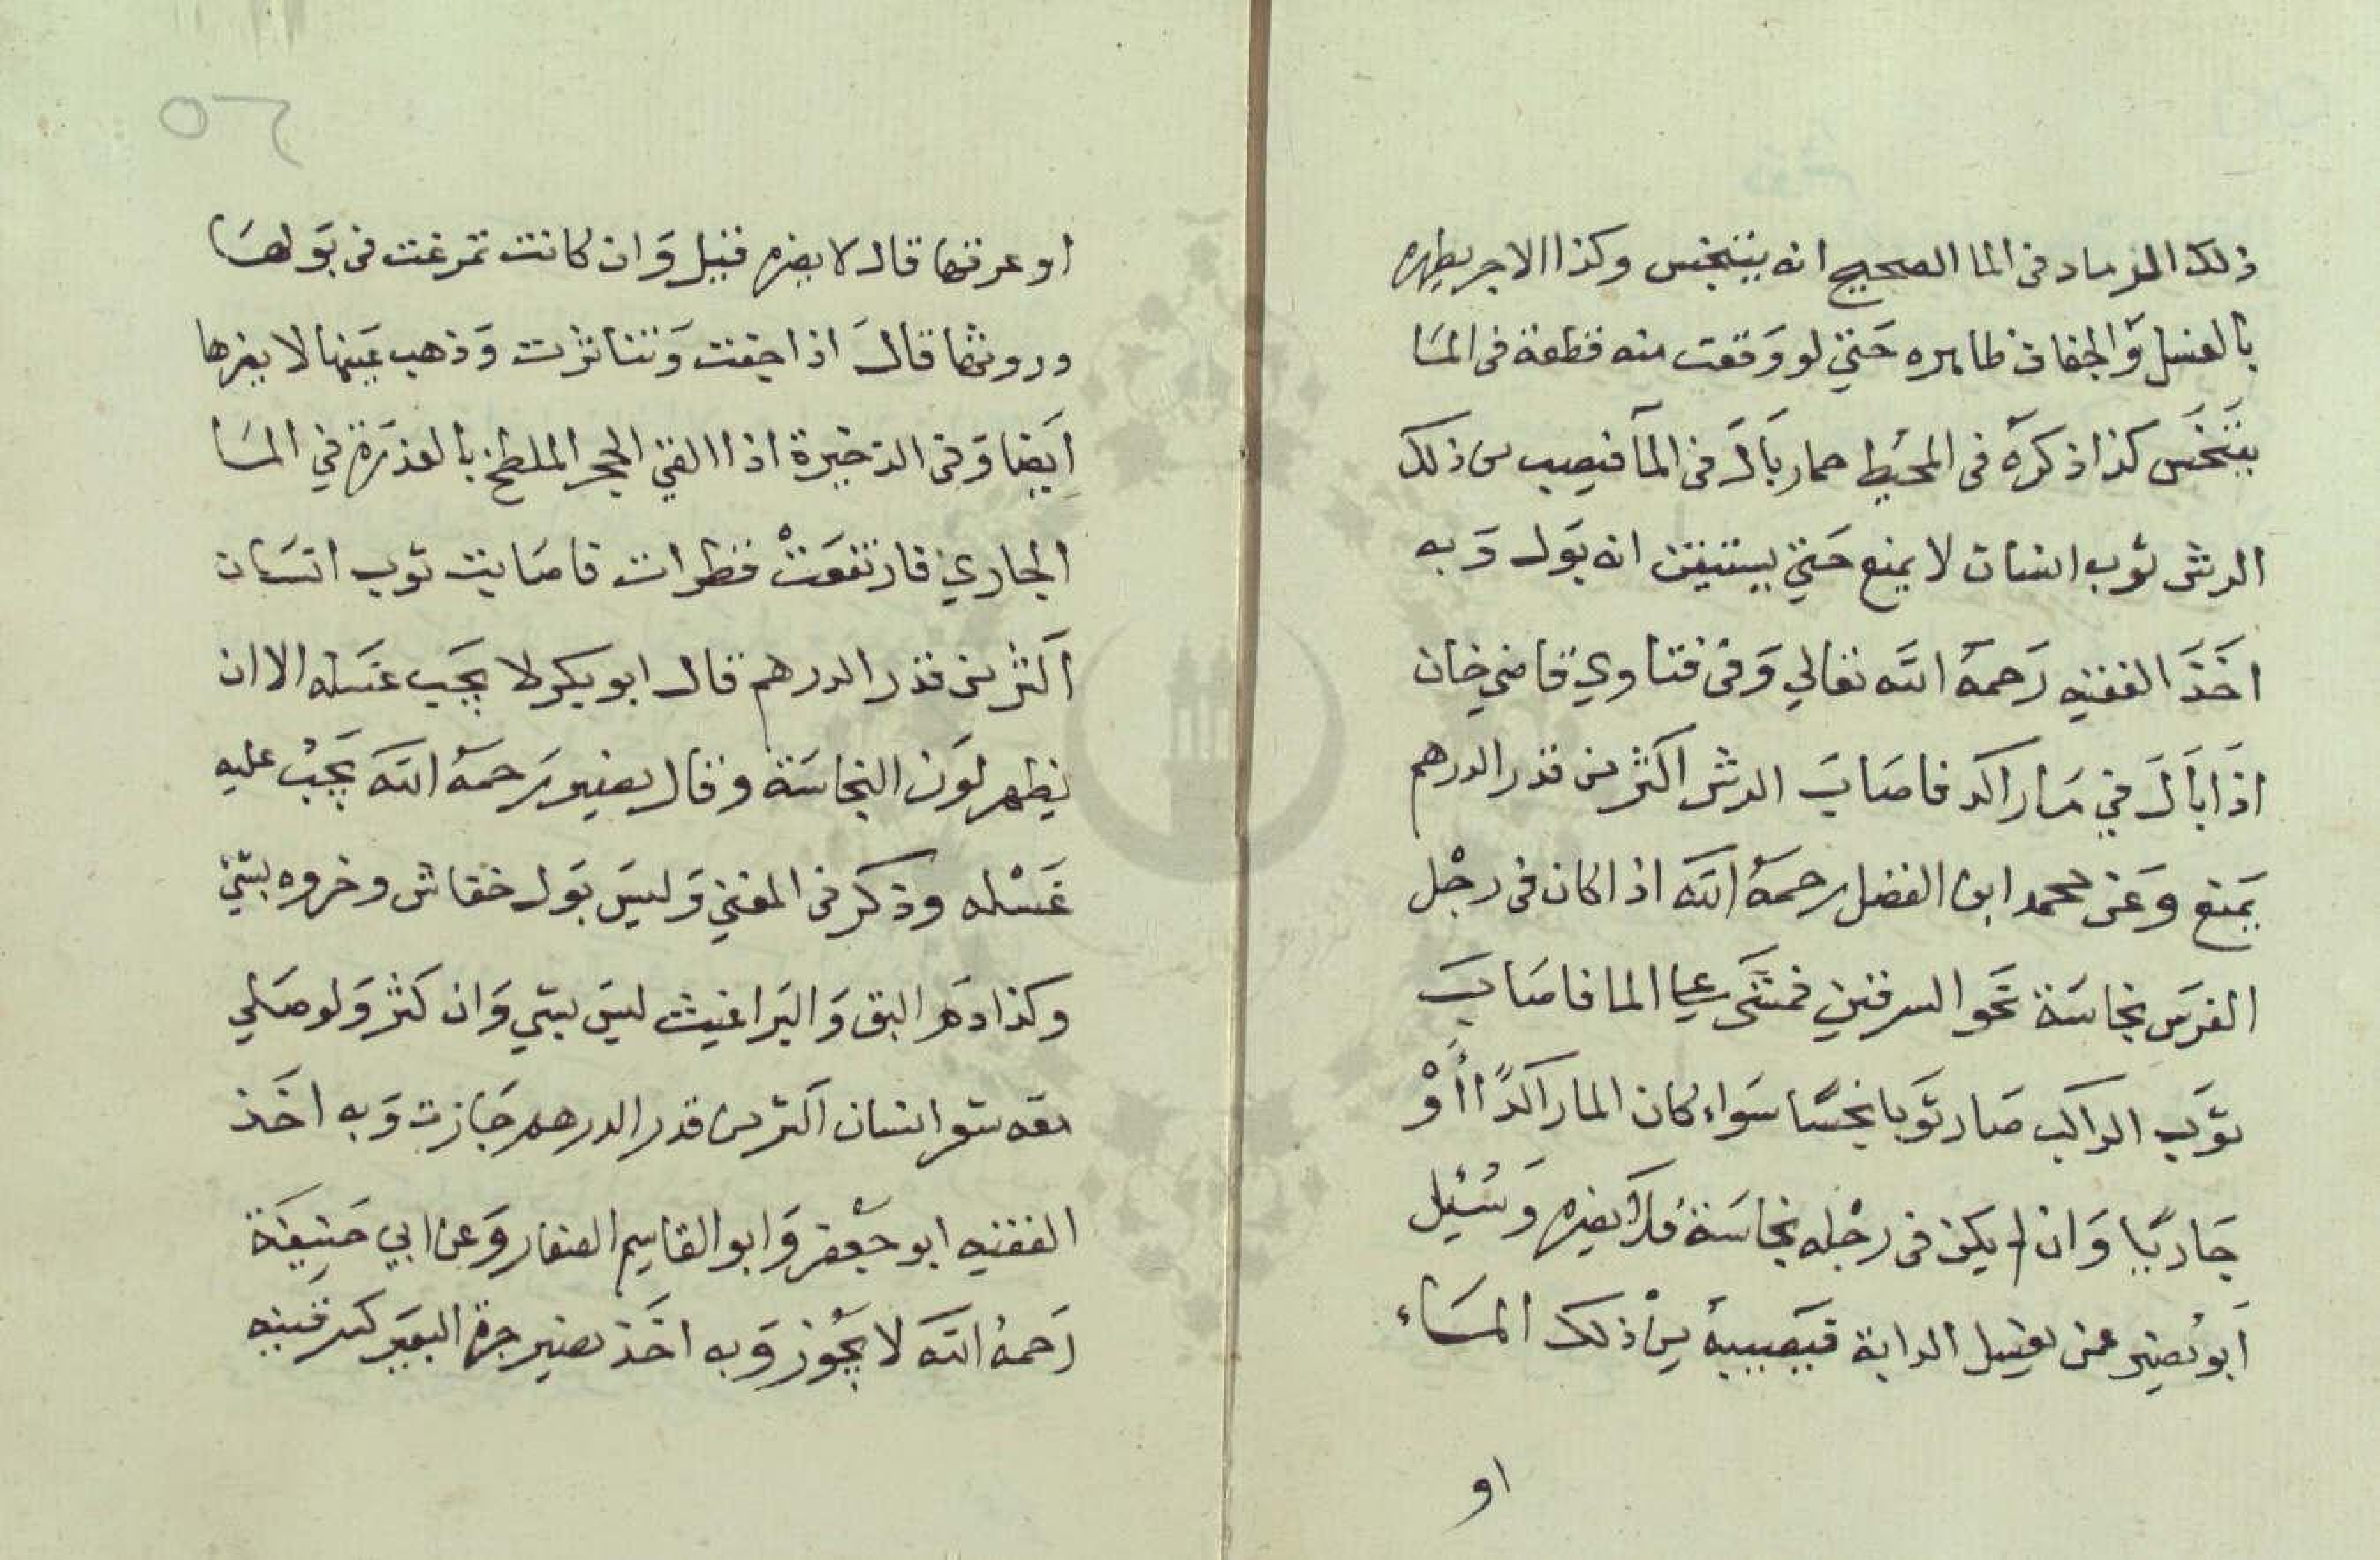 ذلك الرماد فى الما الصحيح انه يتنجس وكذا الاجر يطهره
بالغسل وَالجفاف ظاهره حَتي لو وَقعت منه قطعة فى المَا
يتَنَجَس كذا ذكرَهُ فى المحيَط حمار بَالَ فى المآ فيصيب من ذلك
الرش ثوب انسان لا يمنع حَتي يستيقن انه بَول وَبه
اخَذَ الفقيه رَحمهُ الله تعَالي وَفى فتاوي قاضي خان
اذَا بَالَ في مَا راكد فاصَابَ الرش اكثر من قدر الدرهم
يَمنع وَعَن محمد ابن الفضل رحمَهُ الله اذا كان فى رجْل
الفرَسِ نجاسَة نَحو السرقين فمشَى علي الما فاصَابَ
ثوَب الراكب صَار ثوَبا نجسًا سَواء كان الما راكدًا أَوْ
جَاريًا وَان لم يكن فى رجْله نجاسَة فلَا يضره وَسُئِل
اَبو نُصير عمن يغسل الدابة فيَصيبهُ مِنْ ذلك المَاء
او
٥٦
او عرقها قال لا يضره قيل وَان كانت تمرغت فى بَولهَا
وروثها قالَ اذا جفت وَتناثرت وَذهب عَينها لا يضرها
اَيضا وَفى الذخيرة اذا القي الحجر الملطخ بالعذَرة في المَا
الجاري فارتفعَتْ قطرات فاصَابت ثوب انسَان
اكَثر من قدر الدرهم قال ابو بكر لا يجَب غسَله الا ان
يظهر لَون النجاسَة وقال نصير رَحمَهُ الله يَجبُ عليه
غسْله وذكر فى المغني وَليسَ بَول خفاش وخروه بشَي
وكذا دَم البق وَالبَراغيث ليسَ بشَي وَان كثر وَلو صَلي
معه شعر انسان اكثر من قدر الدرهم جَازت وَبه اخَذ
الفقيه ابو جَعْفر وَابو القاسِم الصفار وَعن ابي حَنِيفَة
رَحمهُ الله لا يجُوز وَبه اخَذ نصير جرة البعَير كسرقينه